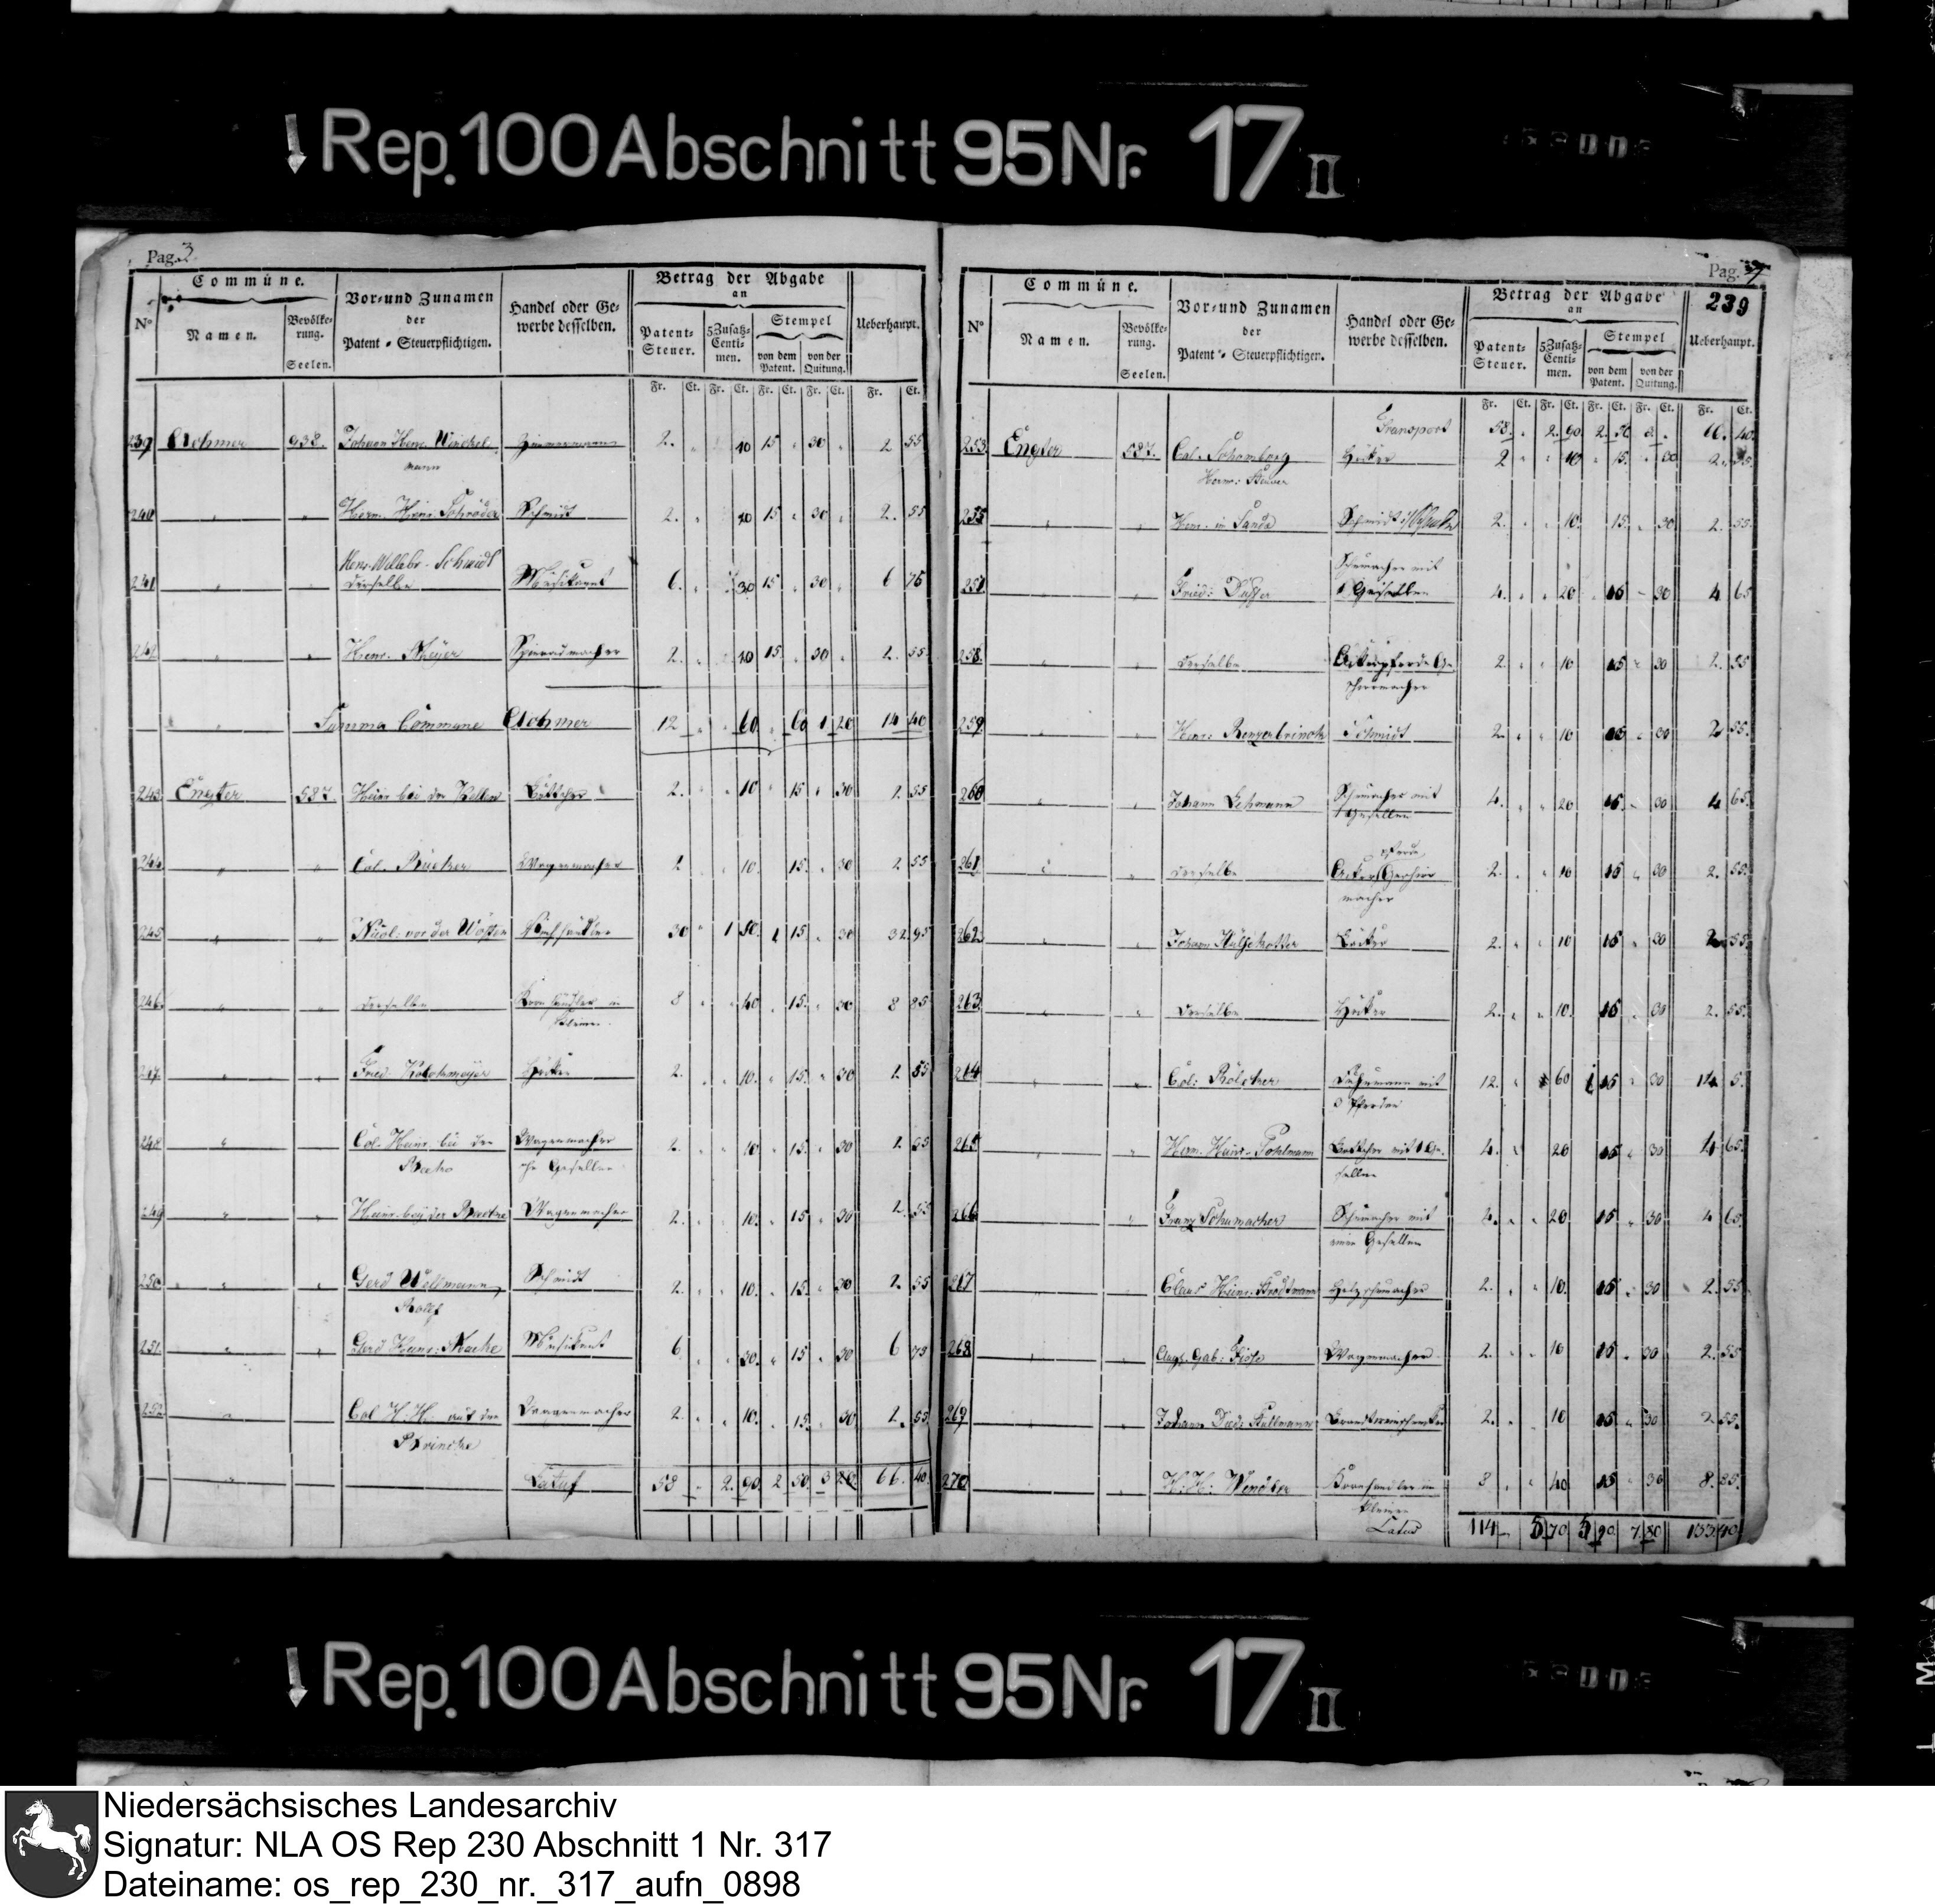 ↓ Rep. 100 Abschnitt 95 Nr. 17 II
Pag. 3
Commüne.
Vor= und Zunamen
der
Patent = Steuerpflichtigen.
Handel oder Ge-
werbe desselben.
Betrag der Abgabe
an
Ueberhaupt.
N°
Namen.
Bevölke-
rung.
Seelen.
Patent-
Steuer.
5 Zusatz-
Centi-
men.
Stempel
von dem
Patent.
von der
Quitung.
Fr. Ct. Fr. Ct. Fr. Ct. Fr. Ct. Fr. Ct.
239 Achmer 938. Johann Henr. Winckel- Zimmermann 2. " 10 15 " 30 " 2 55
mann
240 " " Herm. Henr. Schröder Schmidt 2. " 10 15 " 30 " 2. 55
Schmidt
241 " " Derselbe Musikant 6. " 30 15 " 30 " 6 75
242 " " Henr. Meyer Spinradmacher 2. " 10 15 " 30 " 2. 55
Summa Commune Achmer 12 " " 60 " 60 1 20 14 40
243 Engter 587. Heinr bei der Böttcher 2. " " 10 " 15 " 30 2. 55
244 " " Col. Wagenmacher 2 " 10. 15. " 30 2 55
245 " " Nicol: von der Wösten 30 " 1 50. 1 15 " 30 32. 95
246 " " Derselbe Kornhändler im 8 " " 40 " 15. " 30 8 85
Kleinen.
247. " " Fried. Höker 2. " " 10. " 15. " 30 2. 55
248 " " Col. Heinr. bei der Wagenmacher 2. " " 10 " 15. " 30 2. 55
Gesellen
249 " " Heinr. bey der Wagenmacher 2. " " 10. " 15 " 30 2. 55
250. " " Gerd Wellmann, Schmidt 2. " " 10. " 15. " 30 2. 55
251. " " Gerd Heinr: Musikant 6 " " 30. " 15 " 30 6 75
252. " " Col H: H. auf den 2. " " 10. " 15. " 30 2. 55
Brincke
Latus 58 " 2. 90. 2 50. 3 66. 40.
Pag. 4
239
Commüne.
Vor= und Zunamen
der
Patent = Steuerpflichtigen.
Handel oder Ge-
werbe desselben.
Betrag der Abgabe
an
Ueberhaupt.
N°
Namen.
Bevölke-
rung.
Seelen.
Patent-
Steuer.
5 Zusatz-
Centi-
men.
Stempel
von dem
Patent.
von der
Quitung.
Fr. Ct. Fr. Ct. Fr. Ct. Fr. Ct. Fr. Ct.
Transport 58. " 2. 90. 2. 50 66. 40.
253. Engter 587. Col. Schomborg Höker 2 " " 10 " 15. " 30 2. 55.
" " Henr. im Sande Schmidt 2. " " 10. 15. " 30 2. 55.
Schumacher mit
" " Fried: 1 Gesellen 4. " " 20 " 15 " 30 4 65
258. " " Derselbe Ackerpferde Ge- 2. " " 10 15 " 30 2. 55
schirrmacher
259. " " Henr: Renzenbrinck Schmidt 2. " " 10 15 " 30 2 55.
260 " " Johann Lehmann Schumacher mit 4. " " 20 15 " 30 4 65.
1 Gesellen
pferde
261 " " Derselbe Acker Geschirr 2. " " 10 15 " 30 2. 55.
macher
262. " " Johann 2. " " 10 15 " 30 2. 55.
263. " " Derselbe Höker 2. " " 10. 15 " 30 2. 55.
264 " " Col: Fuhrmann mit 12. " " 60 1 15 " 30 14 5.
3 Pferden
265 " " Herm. Heinr. Pohlmann Böttcher mit 1 Ge- 4. " 20 15 " 30 4 65.
sellen
266 " Franz Schumacher Schumacher mit 4. " " 20 15 " 30 4 65.
einem Gesellen
267 Claus Heinr. Brodtmann Holzschumacher 2. " " 10. 15 " 30 2. 55
268. " " Aug. Gab: Wagenmacher 2. " " 10 15 " 30 2. 55
269 " " Johann Died: Brandtweinschenker 2. " 10 15 " 30 2 55.
270 " H: H: Kornhandler im 8 " " 40 15 " 30 8. 85.
Kleinen
Latus 114 5.70 5 90. 7.80 133.40
↓ Rep. 100 Abschnitt 95 Nr. 17 II
Niedersächsisches Landesarchiv
Signatur: NLA OS Rep 230 Abschnitt 1 Nr. 317
Dateiname: os_rep_230_nr._317_aufn_0898